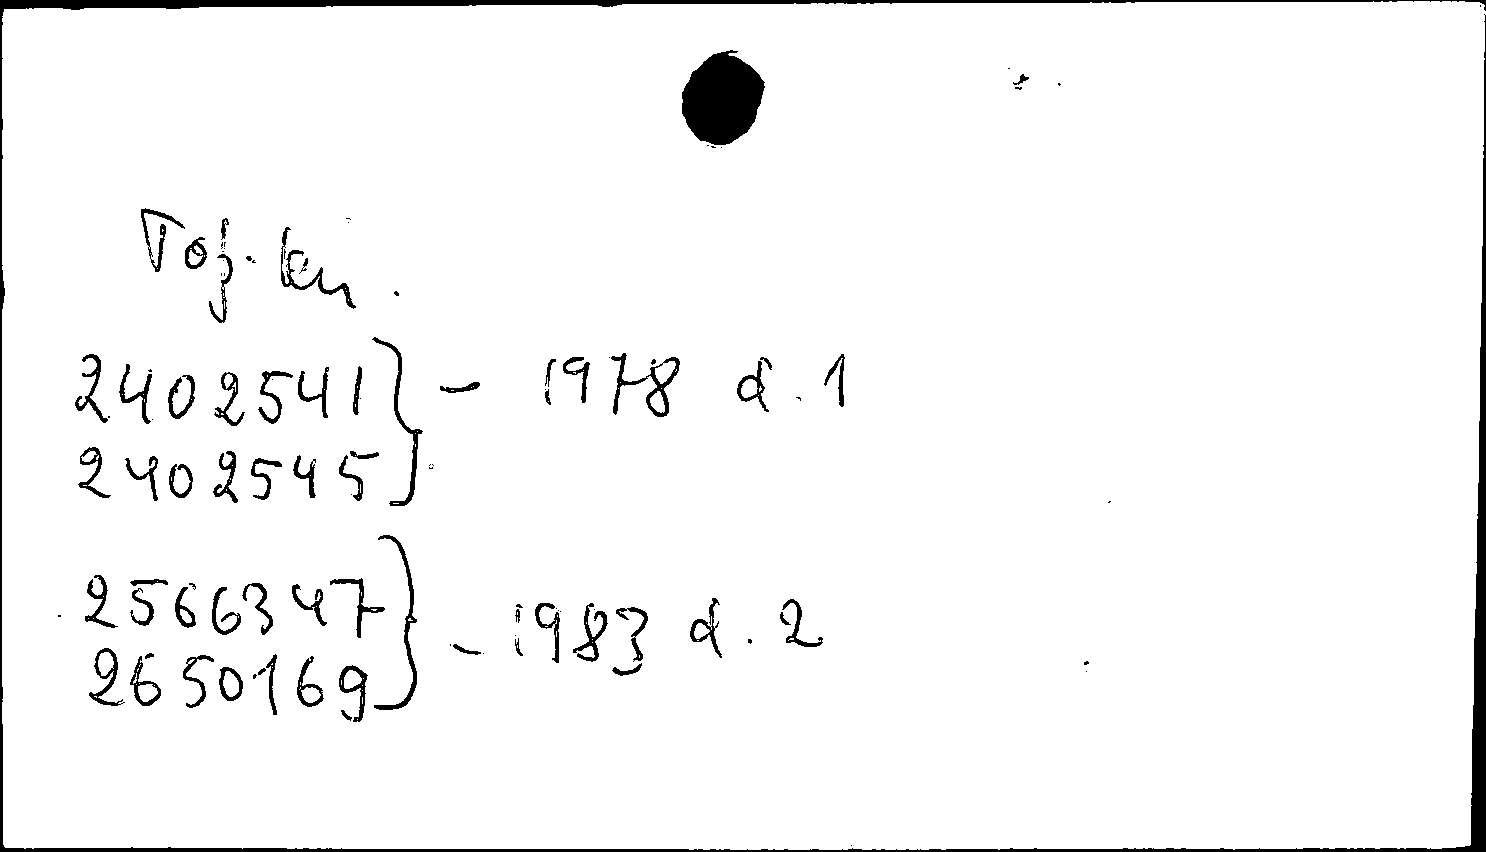 2402541 } – 1978 d. 1
2402545
2566347 } – 1983 d. 2
2650169